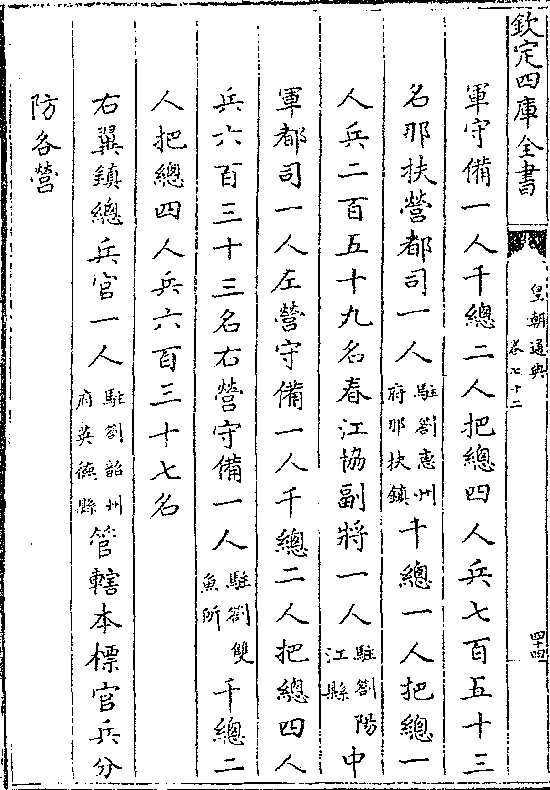 欽定四庫全書
皇朝通典
卷七十二
四十四
軍守備一人千總二人把總四人兵七百五十三
名那扶營都司一人駐劄惠州府那扶鎮千總一人把總一
人兵二百五十九名春江協副將一人駐劄陽江縣中
軍都司一人左營守備一人千總二人把總四人
兵六百三十三名右營守備一人駐劄雙魚所千總二
人把總四人兵六百三十七名
右翼鎮總兵官一人駐劄韶州府英德縣管轄本標官兵分
防各營